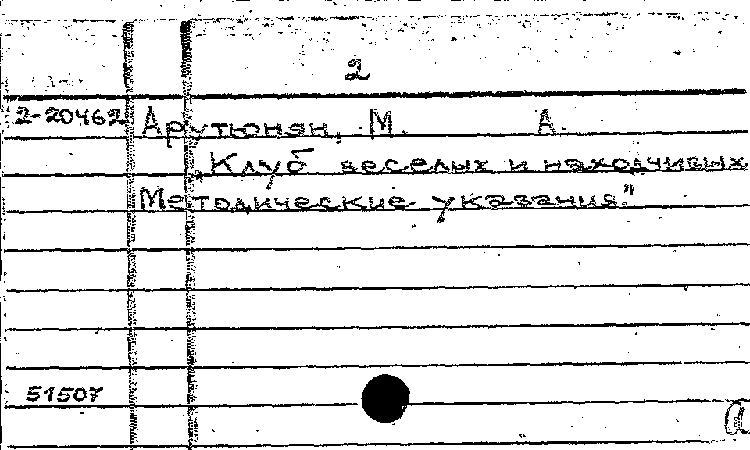 2
2-20462 Арутюнян, М. А.
„Клуб веселых и находчивых
Методические указания."
51507
а